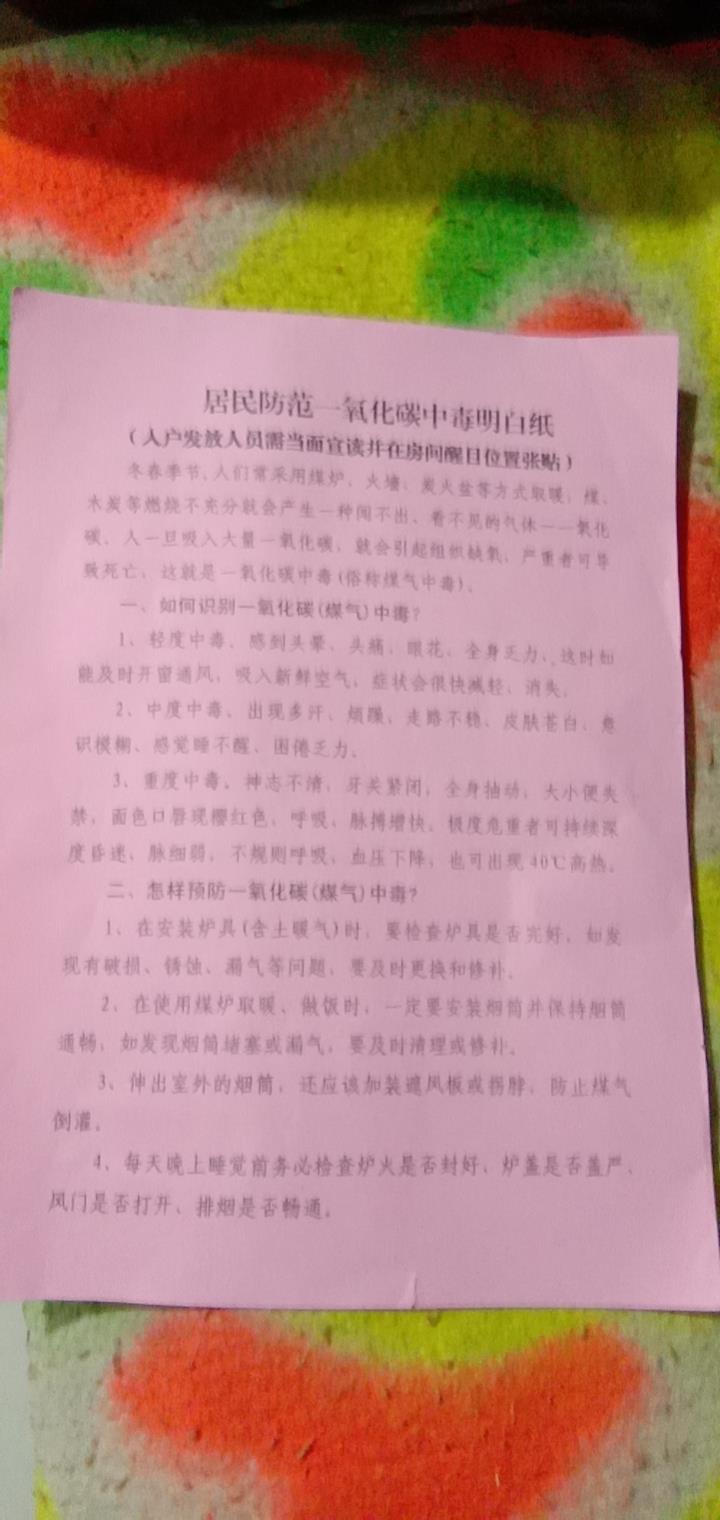 居民防范一氧化碳中毒明白纸
（入户发放人员需当面宣读并在房间醒目位置张贴）
冬春季节,人们常采用煤炉、火墙、炭火盆等方式取暖，煤、
木炭等燃烧不充分就会产生一种闻不出、看不见的气体——一氧化
碳，人一旦吸入大量一氧化碳，就会引起组织缺氧，严重者可导
致死亡，这就是一氧化碳中毒(俗称煤气中毒)。
一、如何识别一氧化碳(煤气)中毒?
1、轻度中毒。感到头晕、头痛、眼花、全身乏力，这时如
能及时开窗通风，吸入新鲜空气，症状会很快减轻、消失。
2、中度中毒。出现多汗、烦躁、走路不稳、皮肤苍白、意
识模糊、感觉睡不醒、困倦乏力。
3、重度中毒。神志不清，牙关紧闭，全身抽动，大小便失
禁，面色口唇现樱红色，呼吸、脉搏增快。极度危重者可持续深
度昏迷，脉细弱，不规则呼吸，血压下降，也可出现40℃高热。
二、怎样预防一氧化碳(煤气)中毒?
1、在安装炉具(含土暖气)时，要检查炉具是否完好，如发
现有破损、锈蚀、漏气等问题，要及时更换和修补。
2、在使用煤炉取暖、做饭时，一定要安装烟筒并保持烟筒
通畅，如发现烟筒堵塞或漏气，要及时清理或修补。
3、伸出室外的烟筒，还应该加装遮风板或拐脖，防止煤气
倒灌。
4、每天晚上睡觉前务必检查炉火是否封好、炉盖是否盖严、
风门是否打开、排烟是否畅通。